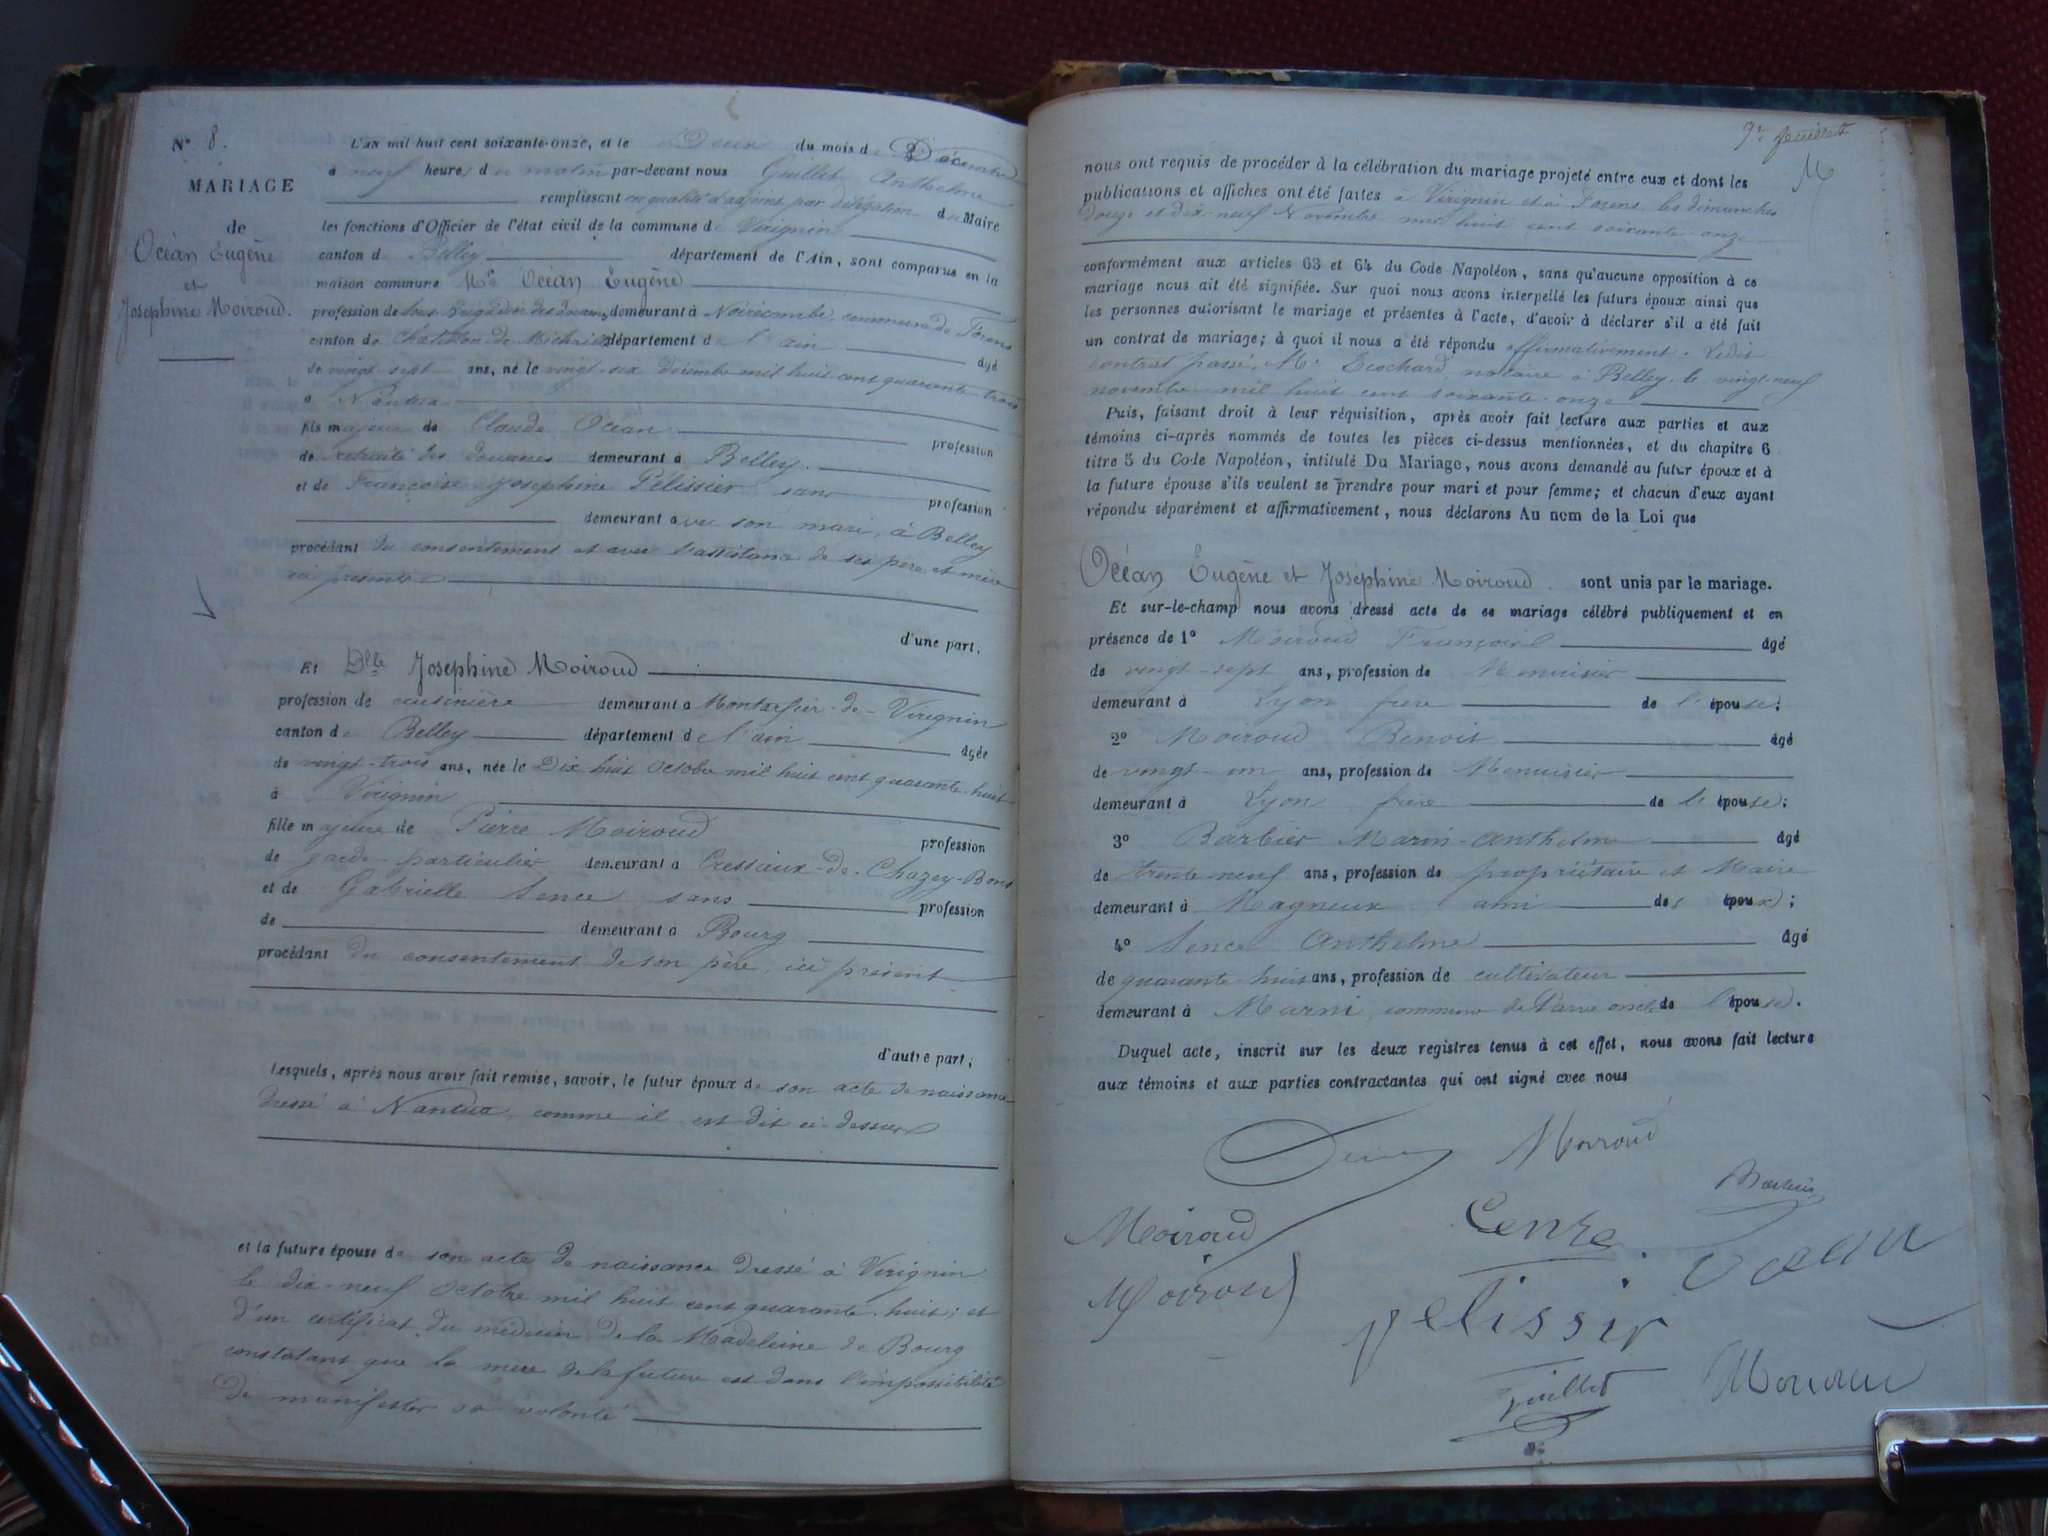 N° 8.
MARIAGE
de
Océan Eugène
et
Joséphine Moiroud.
L'AN mil huit cent soixante-onze, et le Deux du mois de Décembre
à neuf heures du matin par-devant nous Guillet Anthelme
remplissant en qualité d'adjoint par délégation du Maire
les fonctions d'Officier de l'état civil de la commune de Virignin
canton de Belley département de l'Ain, sont comparus en la
maison commune Mr Océan Eugène
profession de Sous Brigadier des Douanes demeurant à Noirecombe commune de Forens
canton de Chatillon-de-Michaille département de l'ain âgé
de vingt-sept ans, né le vingt-six Décembre mil huit cent quarante trois
à Nantua
fils majeur de Claude Océan profession
de retraité des Douanes demeurant à Belley.
et de Françoise Joséphine Pélissier sans profession
demeurant avec son mari, à Belley
procédant du consentement et avec l'assistance de ses père et mère
ici présents
d'une part;
Et Dlle Joséphine Moiroud
profession de cuisinière demeurant à Montarfier-de-Virignin
canton de Belley département de l'ain âgée
de vingt-trois ans, née le Dix huit Octobre mil huit cent quarante-huit
à Virignin
fille majeure de Pierre Moiroud profession
de garde-particulier demeurant à Cressieux-de-Chazey-Bons
et de Gabrielle Sence, sans profession
de demeurant à Bourg
procédant du consentement de son père, ici présent
d'autre part;
Lesquels, après nous avoir fait remise, savoir, le futur époux de son acte de naissance
dressé à Nantua, comme il est dit ci-dessus
et la future épouse de son acte de naissance dressé à Virignin
le dix-neuf Octobre mil huit cent quarante-huit; et
d'un certificat du médecin de la Madeleine de Bourg
constatant que la mère de la future est dans l'impossibilité
de manifester sa volonté
9e feuillet
M
nous ont requis de procéder à la célébration du mariage projeté entre eux et dont les
publications et affiches ont été faites à Virignin et à Forens les dimanches
douze et dix-neuf Novembre mil huit cent soixante-onze
conformément aux articles 63 et 64 du Code Napoléon, sans qu'aucune opposition à ce
mariage nous ait été signifiée. Sur quoi nous avons interpellé les futurs époux ainsi que
les personnes autorisant le mariage et présentes à l'acte, d'avoir à déclarer s'il a été fait
un contrat de mariage; à quoi il nous a été répondu affirmativement. Ledit
contrat passé, Me Ecochard notaire à Belley le vingt-neuf
novembre mil huit cent soixante-onze
Puis, faisant droit à leur réquisition, après avoir fait lecture aux parties et aux
témoins ci-après nommés de toutes les pièces ci-dessus mentionnées, et du chapitre 6
titre 5 du Code Napoléon, intitulé Du Mariage, nous avons demandé au futur époux et à
la future épouse s'ils veulent se prendre pour mari et pour femme; et chacun d'eux ayant
répondu séparément et affirmativement, nous déclarons Au nom de la Loi que
Océan Eugène et Joséphine Moiroud sont unis par le mariage.
Et sur-le-champ nous avons dressé acte de ce mariage célébré publiquement et en
présence de 1° Moiroud François âgé
de vingt-sept ans, profession de Menuisier
demeurant à Lyon frère de l'épouse;
2° Moiroud Benoit âgé
de vingt-un ans, profession de Menuisier
demeurant à Lyon frère de l'épouse;
3° Barbier Marin-Anthelme âgé
de trente neuf ans, profession de propriétaire et Maire
demeurant à Magneux ami des époux;
4° Sence Anthelme âgé
de quarante-huit ans, profession de cultivateur
demeurant à Marni, commune de Parve oncle de l'épouse.
Duquel acte, inscrit sur les deux registres tenus à cet effet, nous avons fait lecture
aux témoins et aux parties contractantes qui ont signé avec nous
Moiroud
Barbier
Moiroud
Cenze
Océan
Moiroud
pelissir
Guillet
Moiroud